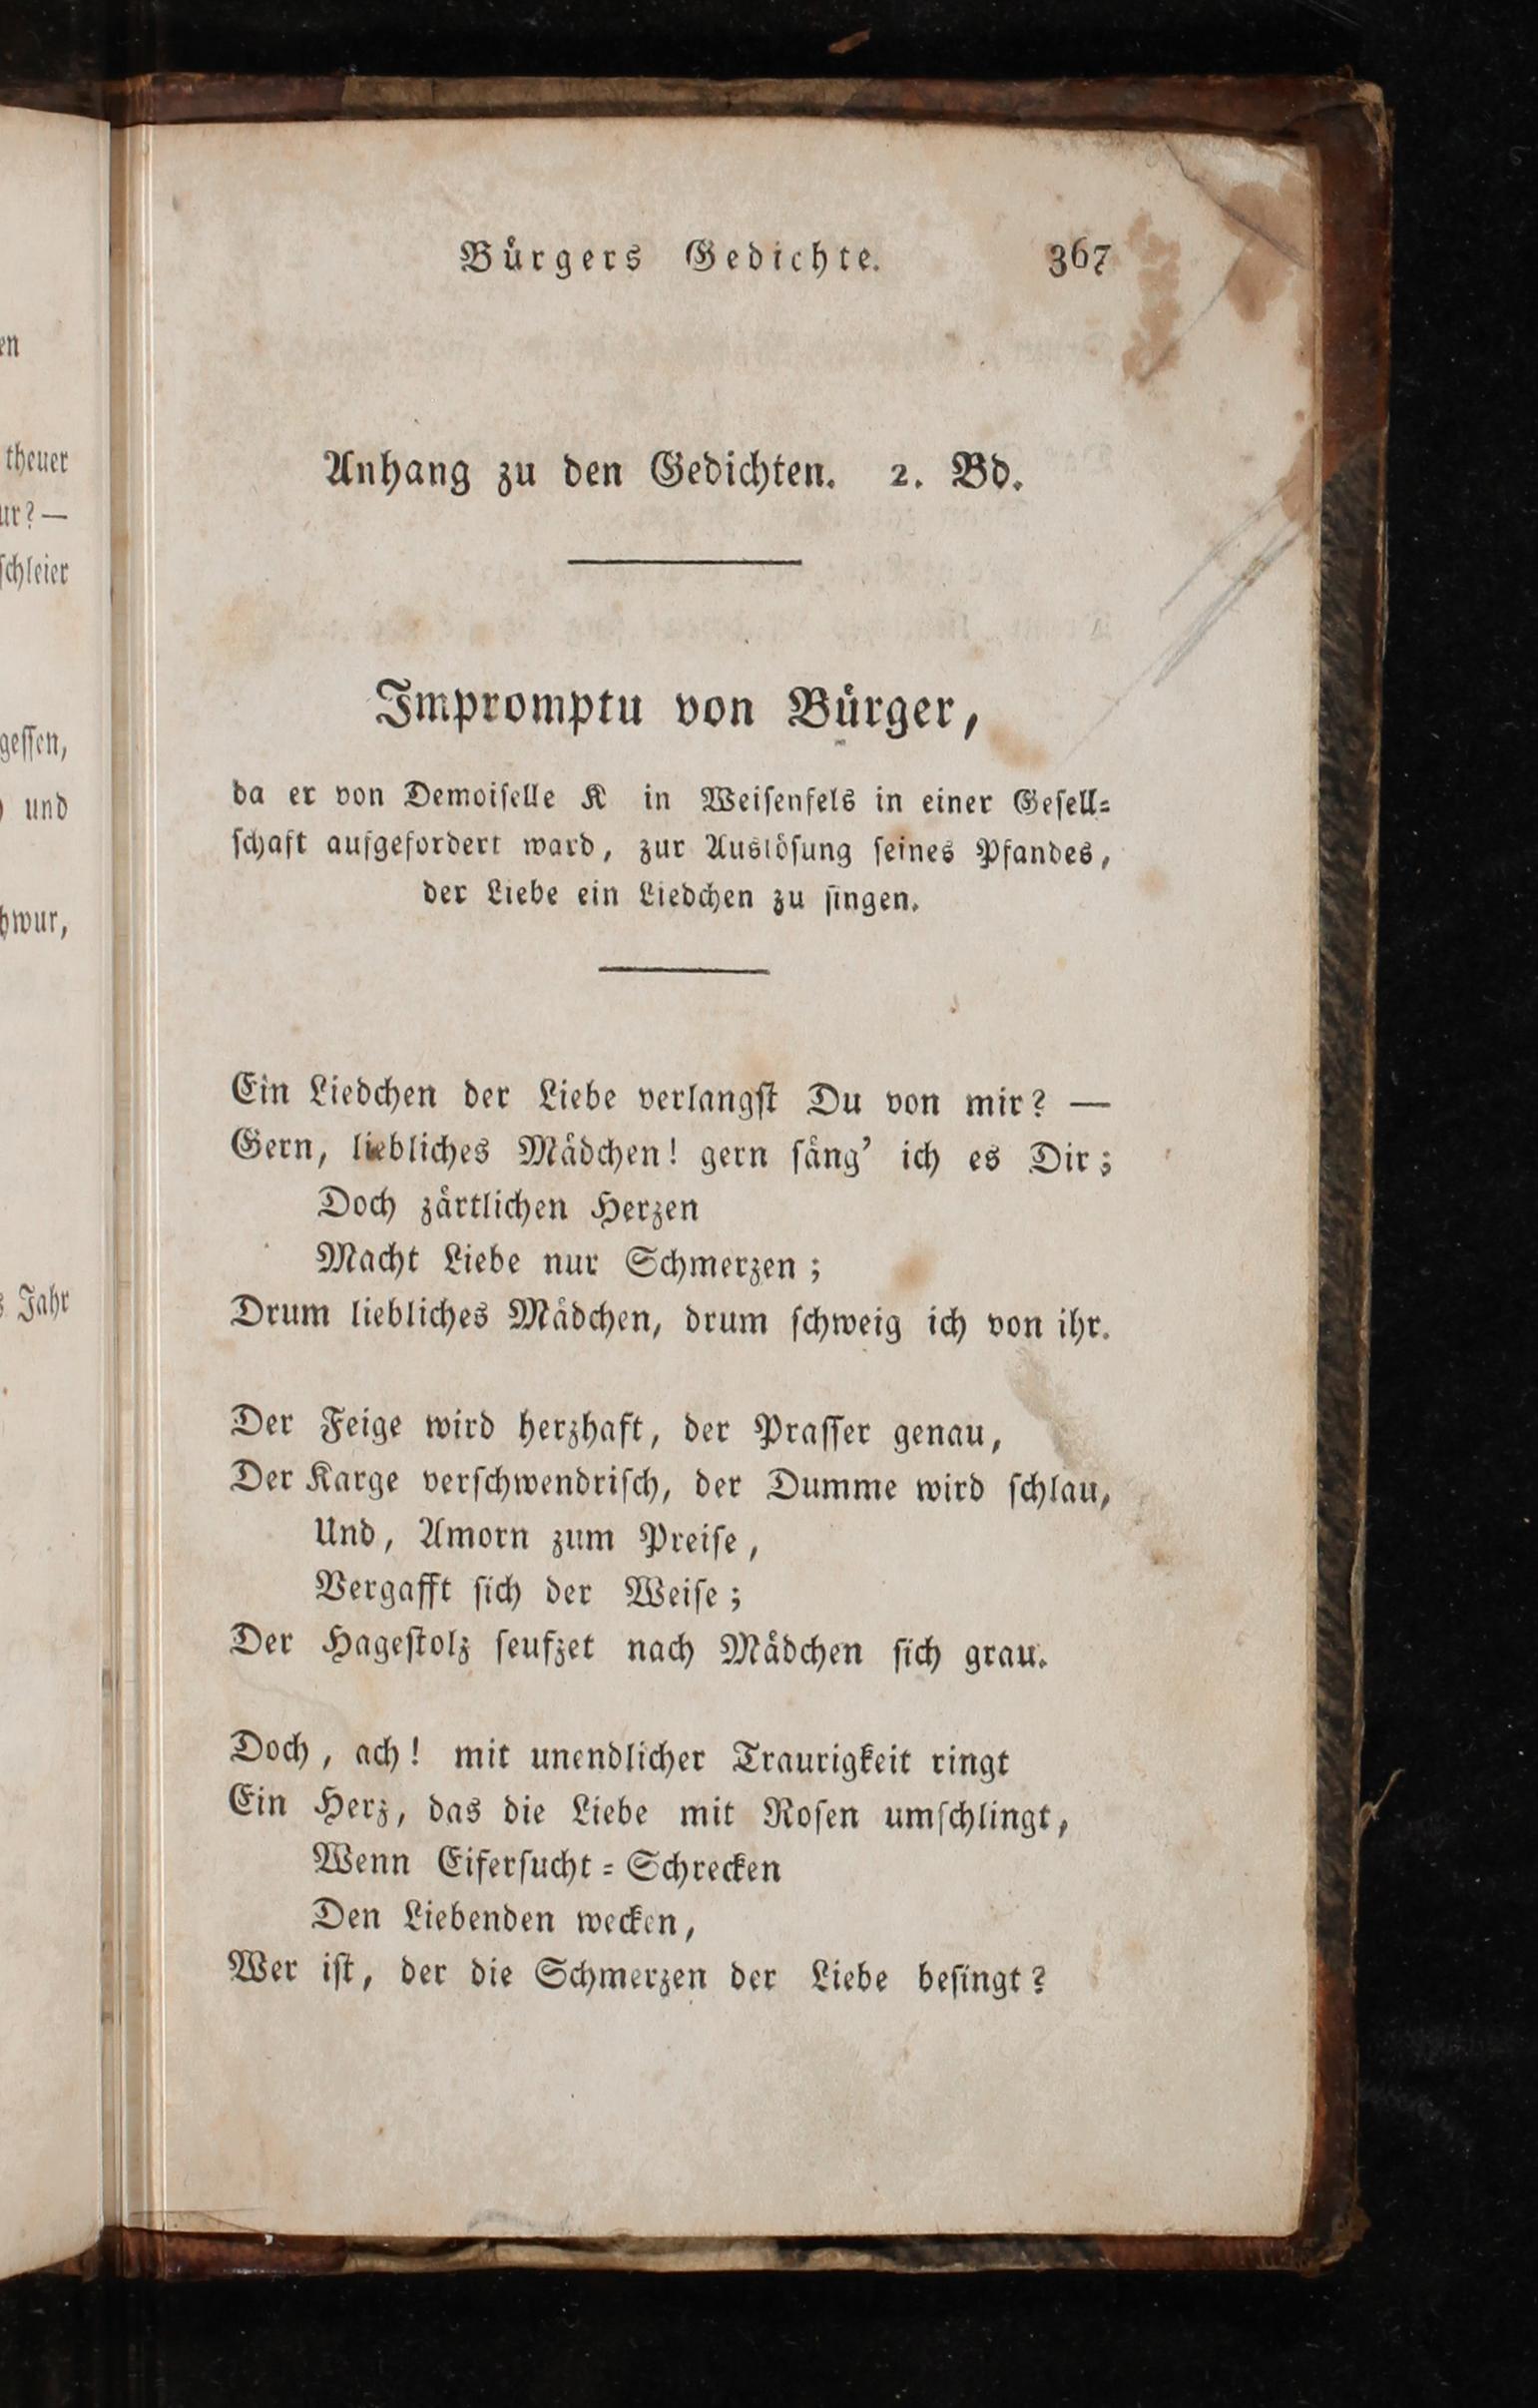 en
theuer
ur? —
schleier
gessen,
und
hwur,
Jahr
Bürgers Gedichte. 367
Anhang zu den Gedichten. 2. Bd.
Impromptu von Bürger,
da er von Demoiselle K in Weisenfels in einer Gesell=
schaft aufgefordert ward, zur Auslösung seines Pfandes,
der Liebe ein Liedchen zu singen.
Ein Liedchen der Liebe verlangst Du von mir? —
Gern, liebliches Mädchen! gern säng' ich es Dir;
Doch zärtlichen Herzen
Macht Liebe nur Schmerzen;
Drum liebliches Mädchen, drum schweig ich von ihr.
Der Feige wird herzhaft, der Prasser genau,
Der Karge verschwendrisch, der Dumme wird schlau,
Und, Amorn zum Preise,
Vergafft sich der Weise;
Der Hagestolz seufzet nach Mädchen sich grau.
Doch, ach! mit unendlicher Traurigkeit ringt
Ein Herz, das die Liebe mit Rosen umschlingt,
Wenn Eifersucht=Schrecken
Den Liebenden wecken,
Wer ist, der die Schmerzen der Liebe besingt?